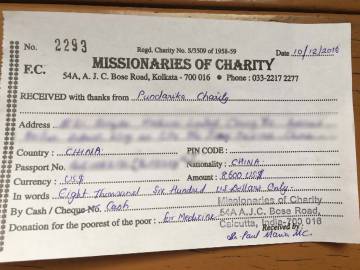 No. 2293
Regd. Charity No. S/3509 of 1958-59
Date 10/12/2016
F.C.
MISSIONARIES OF CHARITY
54A, A. J. C. Bose Road, Kolkata - 700 016 • Phone : 033-2217 2277
RECEIVED with thanks from Pundarika Charity
Address
Country : CHINA
PIN CODE :
Passport No.
Nationality : CHINA
Currency : US$
Amount : 8,600 US$
In words Eight Thousand Six Hundred US Dollars Only
By Cash / Cheque No. Cash
Donation for the poorest of the poor : for Medicine
Missionaries of Charity
54A A.J.C. Bose Road,
Calcutta, India-700 016
Received by
Sr. Paul Maria M.C.